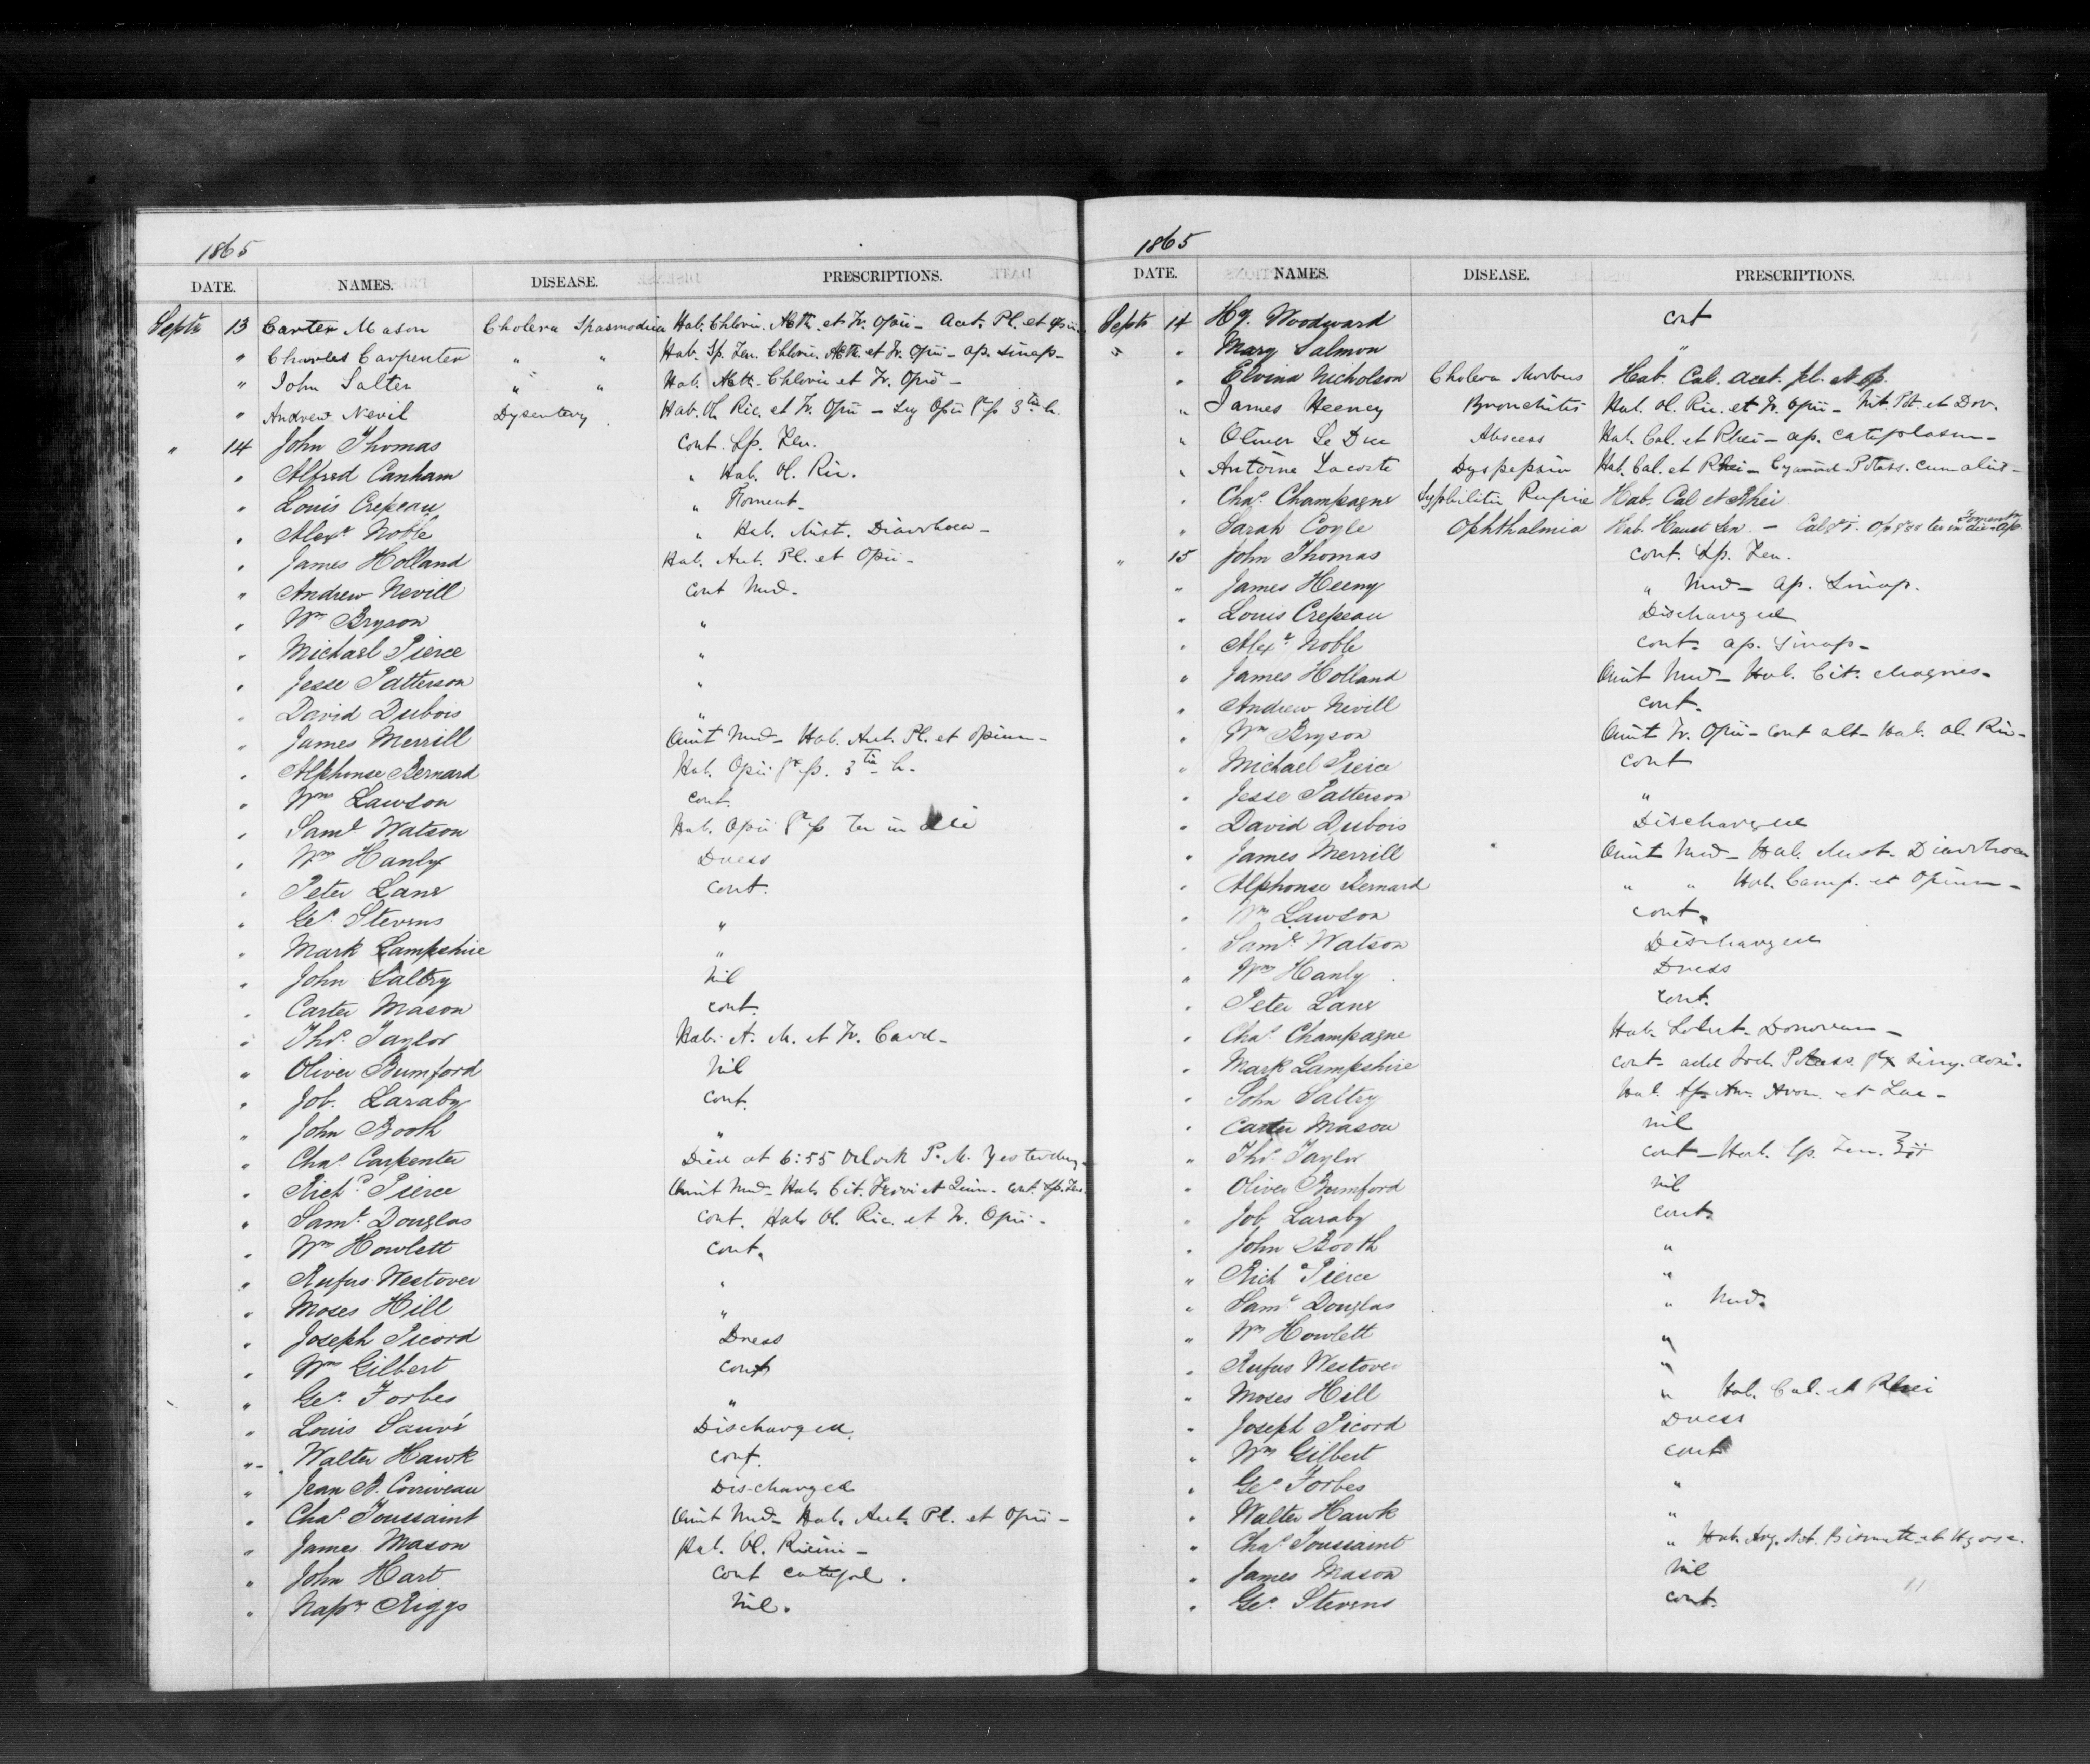 1865
DATE. NAMES. DISEASE. PRESCRIPTIONS.
Septr 13 Carter Mason Cholera Spasmodica Hab. Chlorin. Aeth. et Tr. Opii - Acet. Pl. et Opii
" Charles Carpenter " " Hab. Sp. Fru. Chlorin. Aeth. et Tr. Opii - ap. sinap -
" John Salter " " Hab. Aeth. Chlorin et Tr. Opii -
" Andrew Nevil Dysentery Hab. Ol. Ric. et Tr. Opii - 3tia h.
" 14 John Thomas cont. Sp. Fru.
" Alfred Canham " Hab. Ol. Ric.
" Louis Crepeau " Foment -
" Alexr Noble " Hab. Mist. Diarrhoea -
" James Holland Hab. Acet. Pl. et Opii -
" Andrew Nevill cont Med -
" Wm Bryson "
" Michael Pierce "
" Jesse Patterson "
" David Dubois "
" James Merrill Omit Med - Hab. Acet. Pl. et Opium -
" Alphonse Bernard Hab. Opii 3tia h.
" Wm Lawson cont.
" Saml Watson Hab. Opii ter in die
" Wm Hanly Dress
" Peter Lane cont.
" Geo. Stevens "
" Mark Lampshire "
" John Saltry nil
" Carter Mason cont.
" Thos Taylor Hab. A. M. et Tr. Card -
" Oliver Bumford nil
" Job. Laraby cont.
" John Booth "
" Chas Carpenter Died at 6:55 Oclock P. M. Yesterday -
" Richd Pierce Omit Med - Hab. Cit. Ferri et Quin - cont. Sp. Fru.
" Saml Douglas cont. Hab. Ol. Ric. et Tr. Opii -
" Wm Howlett cont.
" Rufus Westover "
" Moses Hill "
" Joseph Picord Dress
" Wm Gilbert cont
" Geo. Forbes "
" Louis Sauvé Discharged.
" Walter Hawk cont.
" Jean B. Corriveau Discharged
" Chas Toussaint Omit Med - Hab. Acet. Pl. et Opii -
" James Mason Hab. Ol. Ricini -
" John Hart cont catapl.
" Napn Riggs nil.
1865
DATE. NAMES. DISEASE. PRESCRIPTIONS.
Septr 14 Hy. Woodward cont
" " Mary Salmon "
" Elvina Nicholson Cholera Morbus Hab. Cal. Acet. pl. et Op.
" James Heeney Bronchitis Hab. Ol. Ric. et Tr. Opii - Nit. Pot. et Dov.
" Oliver Le Duc Abscess Hab. Cal. et Rhei - ap. cataplasm -
" Antoine Lacoste Dyspepsia Hab. Cal. et Rhei - Cyanid Potass.
" Chas Champagne Syphilitic Rupia Hab. Cal et Rhei
" Sarah Coyle Ophthalmia Hab. Haust Sen. - ter in die - Foment
" 15 John Thomas cont. Sp. Fru.
" James Heeny " Med - ap. Sinap.
" Louis Crepeau Discharged
" Alexr Noble cont - ap. Sinap -
" James Holland Omit Med - Hab. Cit. Magnes -
" Andrew Nevill cont.
" Wm Bryson Omit Tr. Opii - cont alt - Hab. Ol. Ric -
" Michael Pierce cont
" Jesse Patterson "
" David Dubois Discharged
" James Merrill Omit Med - Hab. Mist. Diarrhoea
" Alphonse Bernard " " Hab. Camp. et Opium -
" Wm Lawson cont.
" Saml Watson Discharged
" Wm Hanly Dress
" Peter Lane cont.
" Chas Champagne Hab. Solut. Donovan -
" Mark Lampshire cont - add Iod. Potass.
" John Saltry Hab. Sp. Am. Arom. et Lac -
" Carter Mason nil
" Thos Taylor cont - Hab. Sp. Fru.
" Oliver Bumford nil
" Job Laraby cont.
" John Booth "
" Richd Pierce "
" Saml Douglas " Med.
" Wm Howlett "
" Rufus Westover "
" Moses Hill " Hab. Cal. et Rhei
" Joseph Picord Dress
" Wm Gilbert cont
" Geo. Forbes "
" Walter Hawk "
" Chas Toussaint " Hab. Arg. Nit. Bismuth et Hyos.
" James Mason nil
" Geo. Stevens cont.